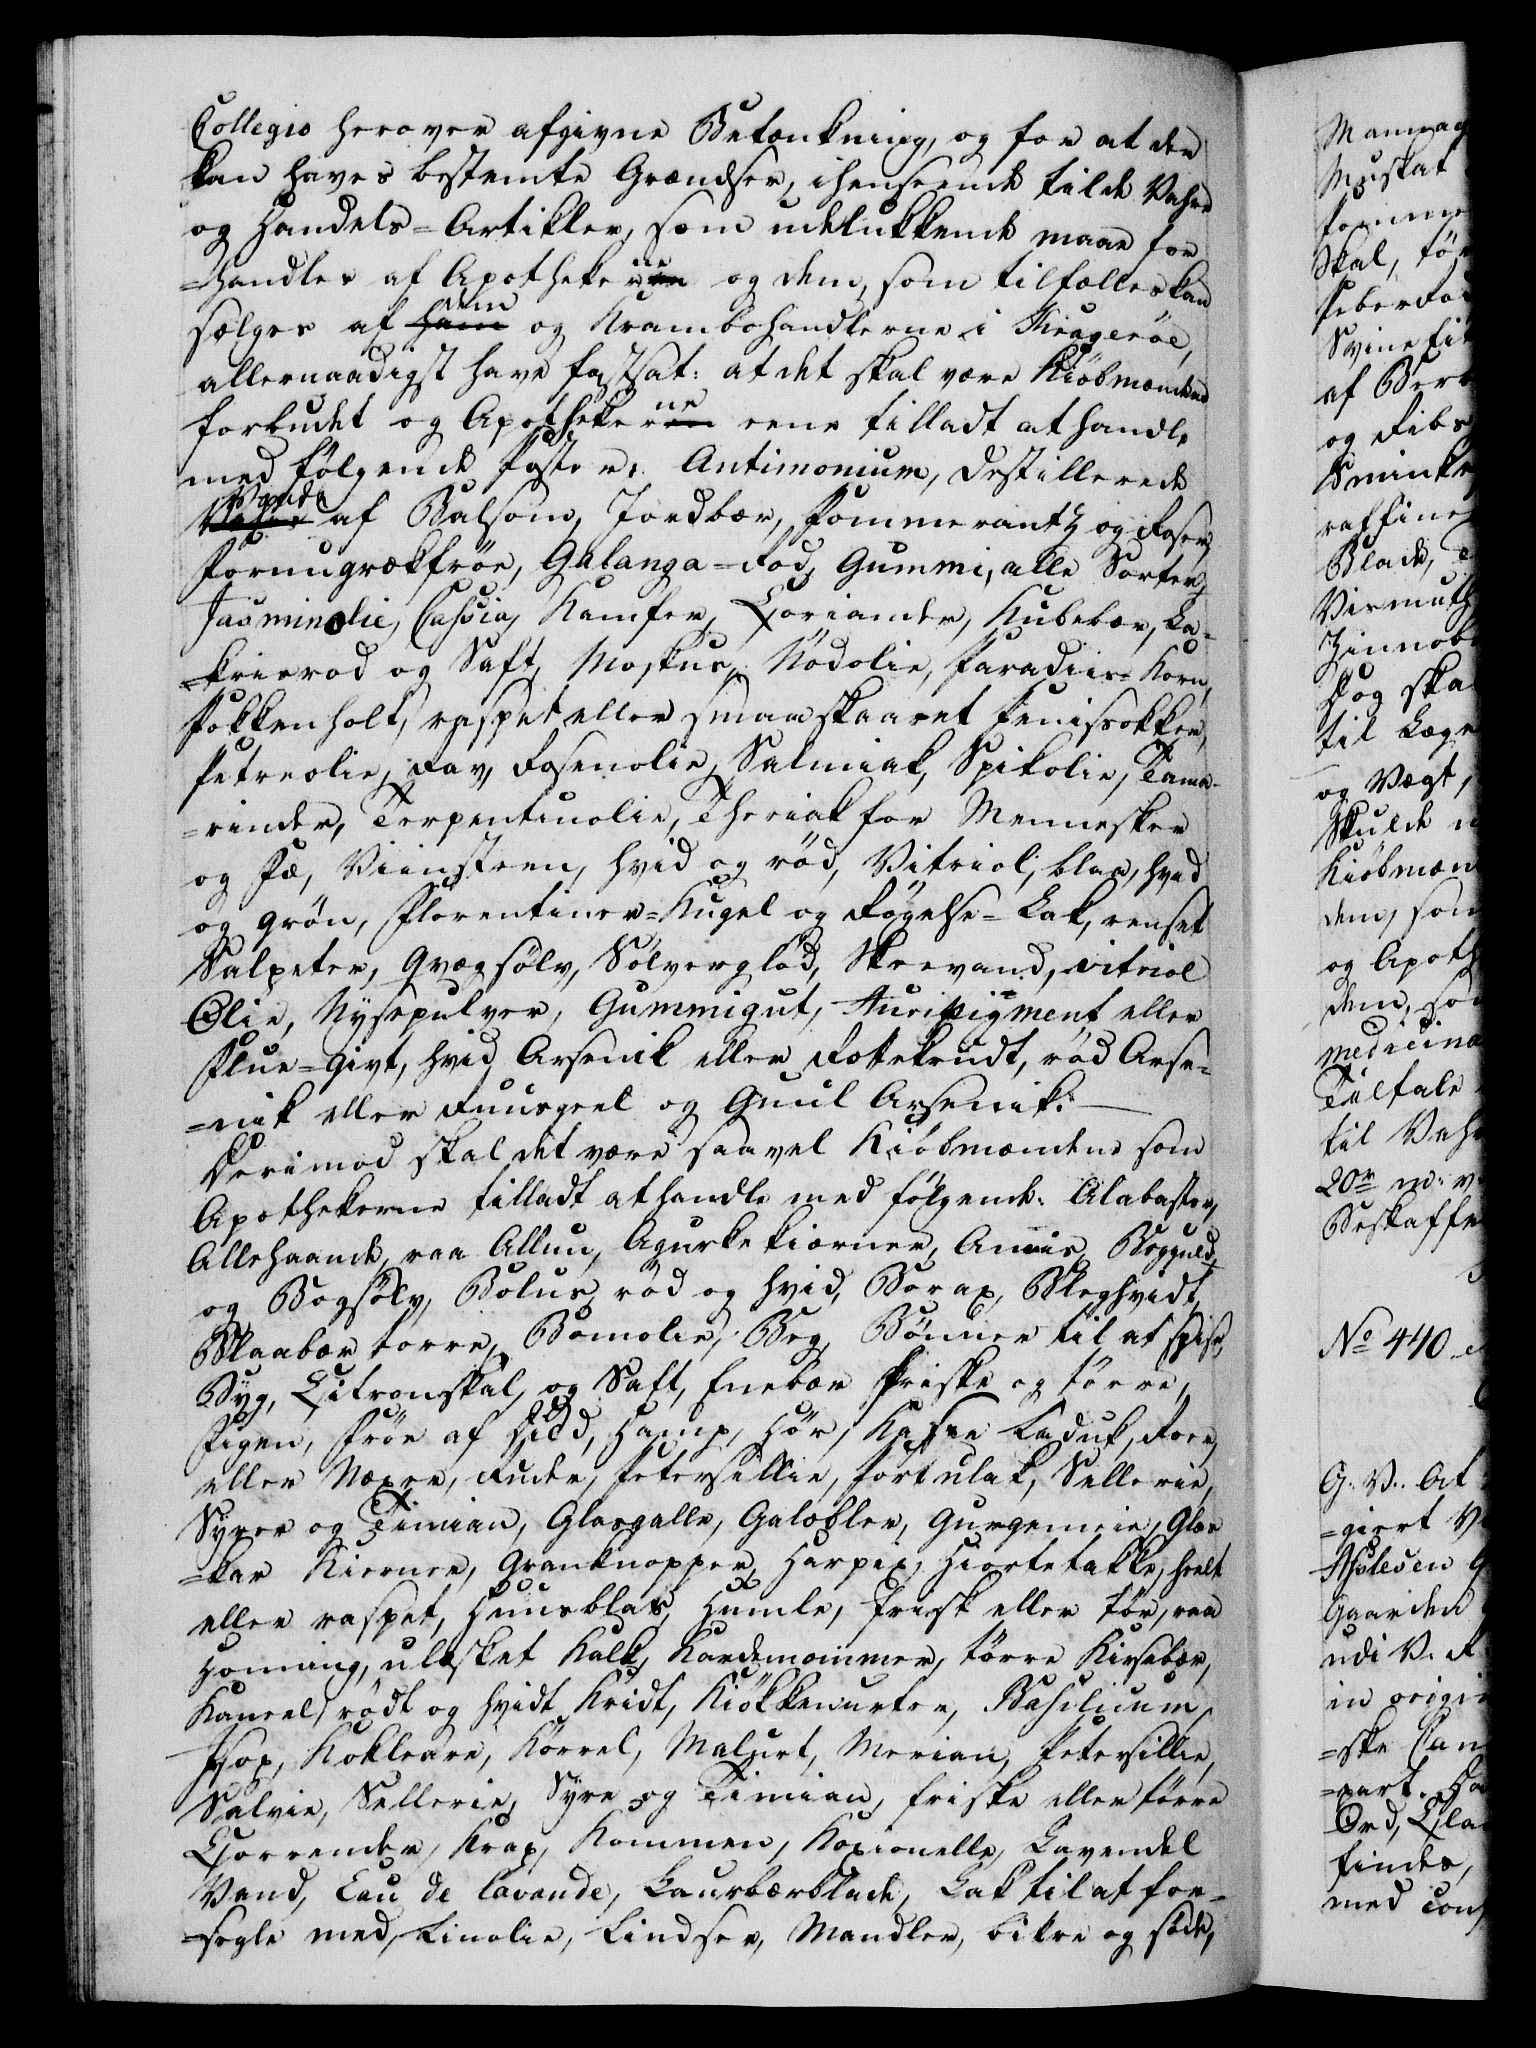 Collegio herover afgivne Betænkning, og for at der
kan haves bestemte Grændser, ihenseende til de Vahre
og Handels=Artikler, som udelukkende maae for
=handles af Apothekerne og dem, som tilfælles kan
sælges af ham dem og Krambohandlerne i Kragerøe,
allernaadigst have fastsat: at det skal være Kiöbmændene
forbudet og Apothekerne ene tilladt at handle
med følgende Poster: Antimonium, Destillerede
Vande af Balsom, Jordbær, Pommerantz og Roser,
Fornugrækfrøe, Galanga=Rod, Gummi, alle Sorter,
Jasminolie, Cassia, Kamfer, Coriander, Kubebær, La=
=kriserod og Saft, Moskus, Nødolie, Paradiis=Korn,
Pokkenholt, raspet eller smaaskaaret Penissokker,
Petreolie, Rav, Rosenolie, Salmiak, Spikolie, Tama=
=rinder, Terpentinolie, Theriak for Mennesker
og Fæ, Viinsteen, hvid og rød, Vitriol, blaa, hvid
og grøn, Florentiner=Kugel og Røgelse=Lak, renset
Salpeter, Qvægsølv, Sølverglød, Skeevand, vitriol
Olie, Nysepulver, Gummigut, Auripigment eller
Flue=Givt, hvid Arsenik eller Rottekrudt, rød Arse=
=nik eller Ruusgeel og Guul Arsenik. —
Derimod skal det være saavel Kiöbmændene som
Apothekerne tilladt at handle med følgende: Alabaster,
Allehaande, raa Allun, Agurkekierner, Aniis, Bogguld
og Bogsølv, Bolus, rød og hvid, Borax, Bleghvidt,
Blaabær torre, Bomolie, Beg, Bønner til at spise,
Byg, Citronskal, og Saft, Enebær friske og tørre,
Figen, Frøe af Hild, Hamp, Hør, Kaal, Laduk, Roer,
eller Næper, Rude, Petersillie, Portulak, Sellerie,
Syrer og Timian, Glasgalle, Galæbler, Gurgemeie, Græs
=kar Kierner, Granknopper, Harpix, Hiortetakke, heelt
eller raspet, Huusblas, Humle, frisk eller tør, raa
Honning, ulesket Kalk, Kardemommer, tørre Kirsebær,
Kaneel, rødt og hvidt Kridt, Kiøkkenurter, Basilicum,
Isop, Kokleare, Körvel, Malurt, Merian, Petersillie,
Salvie, Sellerie, Syre og Timian, friske eller tørre
Correnter, Krap, Kommen, Koxionelle, Lavendel
Vand, Eau de lavande, Laurbærblade, Lak til at for=
=segle med, Linolie, Lindser, Mandler, bitre og søde,
Muskat
Skal, tör
af
og Ribs
raffine
Blade,
Vismuth
Zinnob
Dog ska
til Læge
og Vægt,
Skulde
Kiöbmæn
dem, som
og Apoth
dem, som
medicina
Tiltale
til Vahr
Beskaffe
No 440
G. V. At
=giert
Gaarden
udi V.
in origi
=ske
=part.
Ord,
findes,
med con